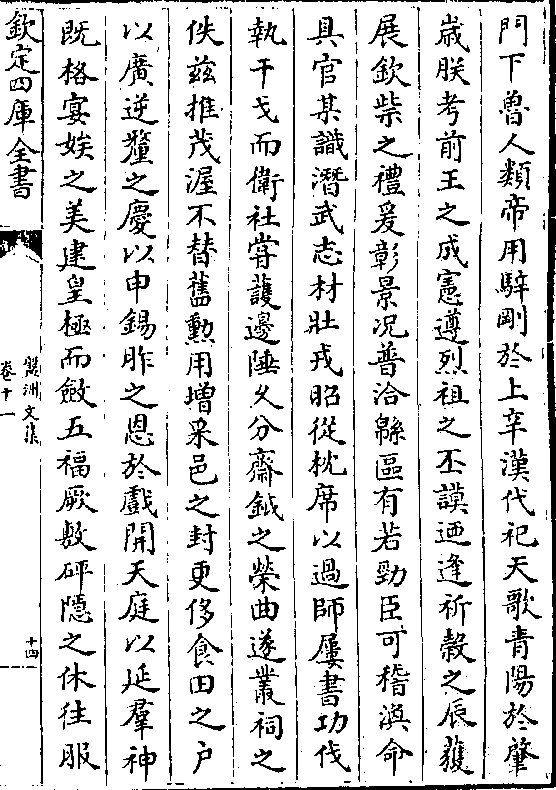 門下魯人類帝用騂剛於上辛漢代祀天歌青陽於肇
歲朕考前王之成憲遵烈祖之丕謨迺逢祈穀之辰䕶
展欽柴之禮爰彰景况普洽緜區有若勁臣可稽渙命
具官某識潛武志材壯戎昭從枕席以過師屢書功伐
執干戈而衛社甞護邊陲久分齋鉞之榮曲遂叢祠之
佚兹推茂渥不替舊勲用增采邑之封更侈食田之户
以廣逆釐之慶以申錫胙之恩於戲開天庭以延羣神
既格宴娭之美建皇極而斂五福厥敷砰隠之休往服
欽定四庫全書
盤洲文集
卷十一
十四